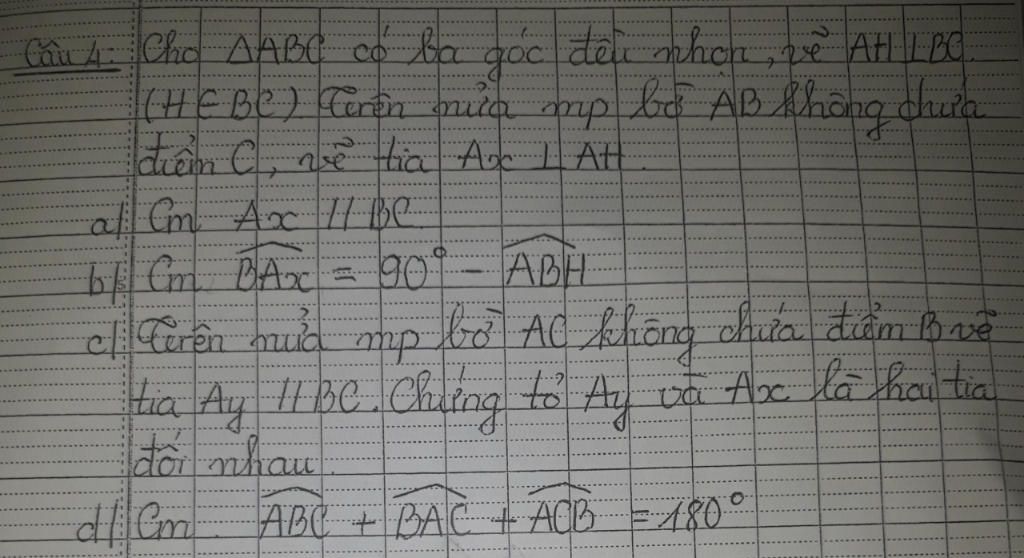 Câu 4: Cho △ABC có ba góc đều nhọn, vẽ AH ⊥ BC.
(H ∈ BC) Trên nửa mp bờ AB không chứa
điểm C, vẽ tia Ax ⊥ AH.
a/ Cm Ax // BC
b/ Cm \widehat{BAx} = 90° - \widehat{ABH}
c/ Trên nửa mp bờ AC không chứa điểm B vẽ
tia Ay // BC. Chứng tỏ Ay và Ax là hai tia
đối nhau.
d/ Cm \widehat{ABC} + \widehat{BAC} + \widehat{ACB} = 180°